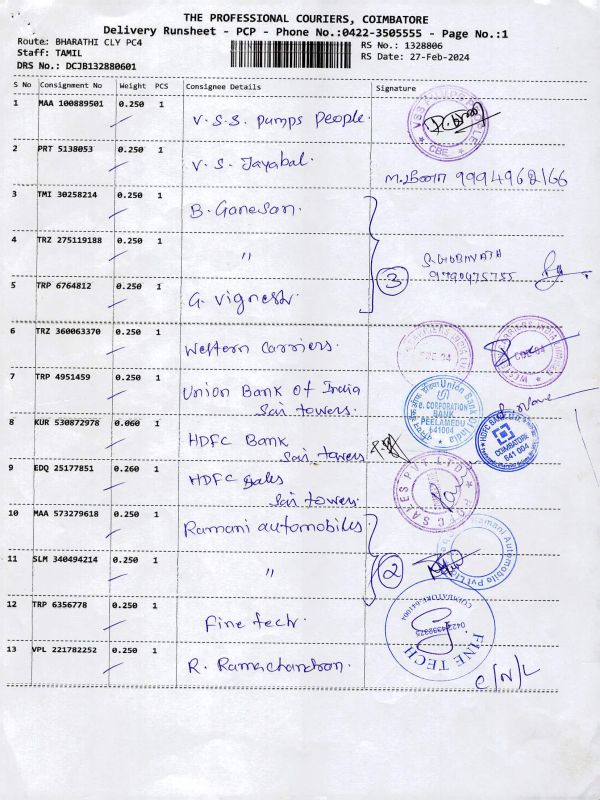 THE PROFESSIONAL COURIERS, COIMBATORE
Delivery Runsheet - PCP - Phone No.:0422-3505555 - Page No.:1
Route: BHARATHI CLY PC4
RS No.: 1328806
Staff: TAMIL
RS Date: 27-Feb-2024
DRS No.: DCJB132880601
S No Consignment No Weight PCS Consignee Details Signature
1 MAA 100889501 0.250 1 V.S.S. Pumps People.
CBE
2 PRT 5138053 0.250 1 V.S. Jayabal.
9994962166
3 TMI 30258214 0.250 1 B. Ganesan.
4 TRZ 275119188 0.250 1 "
9790475755
3
5 TRP 6764812 0.250 1 G. Vignesh.
6 TRZ 360063370 0.250 1 Western Carriers.
CBE-04
CBE-04
7 TRP 4951459 0.250 1 Union Bank of India
Sai towers.
Union Bank of India
e. CORPORATION
BANK
PEELAMEDU
641004
8 KUR 530872978 0.060 1 HDFC Bank
Sai towers
HDFC BANK
COIMBATORE
641 004
9 EDQ 25177851 0.260 1 HDFC Sales
Sai towers.
HDFC SALES PVT LTD
10 MAA 573279618 0.250 1 Ramani automobiles.
Ramani Automobile Pvt Lt
11 SLM 340494214 0.250 1 "
2
12 TRP 6356778 0.250 1 Fine tech.
FINE TECH
COIMBATORE-641004
13 VPL 221782252 0.250 1 R. Ramachandran.
C/N/L